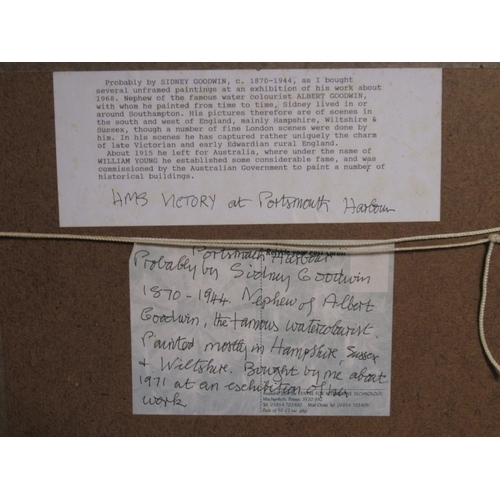 Probably by SIDNEY GOODWIN, c. 1870-1944, as I bought
several unframed paintings at an exhibition of his work about
1968. Nephew of the famous water colourist ALBERT GOODWIN,
with whom he painted from time to time, Sidney lived in or
around Southampton. His pictures therefore are of scenes in
the south and west of England, mainly Hampshire, Wiltshire &
Sussex, though a number of fine London scenes were done by
him. In his scenes he has captured rather uniquely the charm
of late Victorian and early Edwardian rural England.
About 1915 he left for Australia, where under the name of
WILLIAM YOUNG he established some considerable fame, and was
commissioned by the Australian Government to paint a number of
historical buildings.
HMS VICTORY at Portsmouth Harbour
Portsmouth Harbour
Probably by Sidney Goodwin
1870-1944. Nephew of Albert
Goodwin, the famous watercolourist.
Painted mostly in Hampshire, Sussex
& Wiltshire. Bought by me about
1971 at an exhibition of his
work